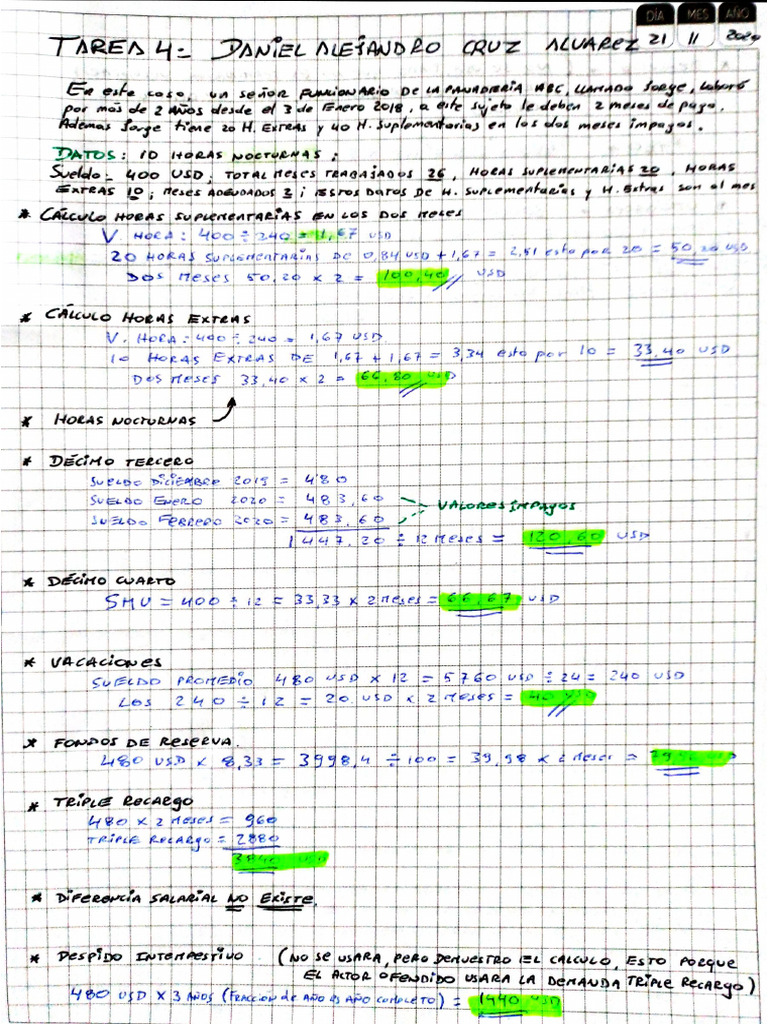 DÍA MES AÑO
TAREA 4 = DANIEL ALEJANDRO CRUZ ALVAREZ 21 11 2024
En este caso, un señor funcionario de la panadería ABC, llamado Jorge, laboró
por más de 2 años desde el 3 de Enero 2018, a este sujeto le deben 2 meses de pago.
Ademas Jorge tiene 20 H. Extras y 40 H. Suplementarias en los dos meses impagos.
DATOS: 10 HORAS NOCTURNAS;
Sueldo - 400 USD; TOTAL MESES TRABAJADOS 26, HORAS SUPLEMENTARIAS 20, HORAS
EXTRAS 10; MESES ADEUDADOS 2; ESTOS DATOS DE H. SUPLEMENTARIAS y H. Extras son al mes
* CÁLCULO HORAS SUPLEMENTARIAS EN LOS DOS MESES
V. HORA: 400 ÷ 240 = 1,67 USD
20 HORAS SUPLEMENTARIAS DE 0,84 USD + 1,67 = 2,51 esto por 20 = 50,20 USD
DOS MESES 50,20 x 2 = 100,40 USD
* CÁLCULO HORAS EXTRAS
V. HORA: 400 ÷ 240 = 1,67 USD
10 HORAS EXTRAS DE 1,67 + 1,67 = 3,34 esto por 10 = 33,40 USD
DOS MESES 33,40 x 2 = 66,80 USD
* HORAS NOCTURNAS
* DÉCIMO TERCERO
SUELDO DICIEMBRE 2019 = 480
SUELDO ENERO 2020 = 483,60
SUELDO FEBRERO 2020 = 483,60
VALORES IMPAGOS
1447,20 ÷ 12 MESES = 120,60 USD
* DÉCIMO CUARTO
SMU = 400 ÷ 12 = 33,33 x 2 MESES = 66,67 USD
* VACACIONES
SUELDO PROMEDIO 480 USD x 12 = 5760 USD ÷ 24 = 240 USD
LOS 240 ÷ 12 = 20 USD x 2 MESES = 40 USD
* FONDOS DE RESERVA.
480 USD x 8,33 = 3998,4 ÷ 100 = 39,98 x 2 MESES = 79,96 USD
* TRIPLE RECARGO
480 x 2 MESES = 960
TRIPLE RECARGO = 2880
3840 USD
* DIFERENCIA SALARIAL NO EXISTE.
* DESPIDO INTEMPESTIVO (NO SE USARA, PERO DEMUESTRO EL CALCULO, ESTO PORQUE
EL ACTOR OFENDIDO USARA LA DEMANDA TRIPLE RECARGO)
480 USD x 3 AÑOS (FRACCIÓN DE AÑO ES AÑO COMPLETO) = 1440 USD